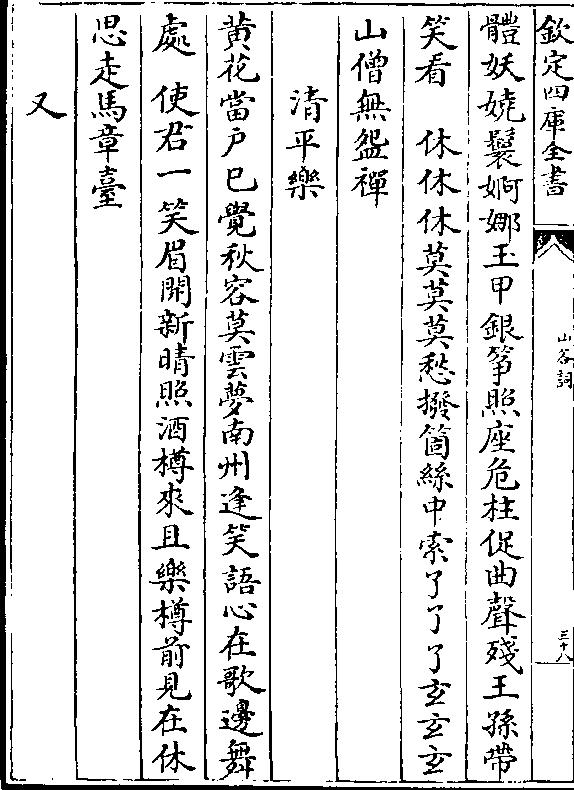 欽定四庫全書
山谷詞
三十八
體妖嬈鬟婀娜玉甲銀箏照座危柱促曲聲殘王孫帶
笑看　休休休莫莫莫愁撥箇絲中索了了了玄玄玄
山僧無盌禪
清平樂
黄花當戸已覺秋容莫雲夢南州逢笑語心在歌邊舞
處　使君一笑眉開新晴照酒樽來且樂樽前見在休
思走馬章臺
又